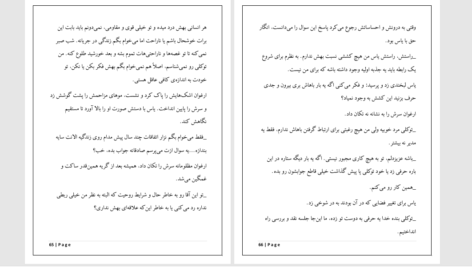 هر انسانی بهش درد میده و تو خیلی قوی و مقاومی. نمی‌دونم باید بابت این
برات خوشحال باشم یا ناراحت اما می‌خوام بگم زندگی در جریانه. شب صبر
نمی‌کنه تا تو غصه‌ها و ناراحتی‌هات تموم بشه و بعد خورشید طلوع کنه. من
توکلی رو نمی‌شناسم. اصلاً هم نمی‌خوام بگم بهش فکر بکن یا نکن، تو
خودت به اندازه‌ی کافی عاقل هستی.
ارغوان اشک‌هایش را پاک کرد و نشست. موهای مزاحمش را پشت گوشش زد
و سرش را پایین انداخت. یاس با دستش صورت او را بالا آورد تا مستقیم
نگاهش کند.
_فقط می‌خوام بگم نزار اتفاقات چند سال پیش مدام روی زندگیه الانت سایه
بندازه... یه سوال ازت می‌پرسم صادقانه جواب بده. خب؟
ارغوان مظلومانه سرش را تکان داد. همیشه بعد از گریه همین‌قدر ساکت و
غمگین می‌شد.
_تو این آقا رو به خاطر حال و شرایط روحیت که البته به نظر من خیلی ربطی
نداره رد می‌کنی یا به خاطر این‌که علاقه‌ای بهش نداری؟
65 | Page
وقتی به درونش و احساساتش رجوع می‌کرد پاسخ این سوال را می‌دانست. انگار
حق با یاس بود.
_راستش، راستش یاس من هیچ کششی نسبت بهش ندارم. به نظرم برای شروع
یک رابطه باید یه جذبه اولیه وجود داشته باشه که برای من نیست.
یاس لبخندی زد و پرسید: و فکر می‌کنی اگه یه بار باهاش بری بیرون و جدی
حرف بزنید این کشش به وجود نمیاد؟
ارغوان سرش را به نشانه نه تکان داد.
_توکلی مرد خوبیه ولی من هیچ رغبتی برای ارتباط گرفتن باهاش ندارم. فقط یه
مدیر نه بیشتر.
_باشه عزیزدلم. تو به هیچ کاری مجبور نیستی. اگه یه بار دیگه ستاره در این
باره حرفی زد یا خود توکلی پا پیش گذاشت خیلی قاطع جوابشون رو بده.
_همین کار رو می‌کنم.
یاس برای تغییر فضایی که در آن بودند به در شوخی زد.
_توکلی بنده خدا یه حرفی به دوست تو زده، ما این‌جا جلسه نقد و بررسی راه
انداختیم.
66 | Page